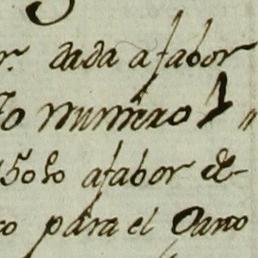 r. dada afabor
to numero 1 "
afabor de
co para el Dano